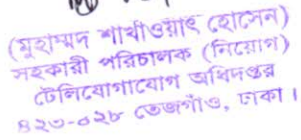 (মুহাম্মদ শাখাওয়াৎ হোসেন)
সহকারী পরিচালক (নিয়োগ)
টেলিযোগাযোগ অধিদপ্তর
৪২৩-০২৮ তেজগাঁও, ঢাকা।